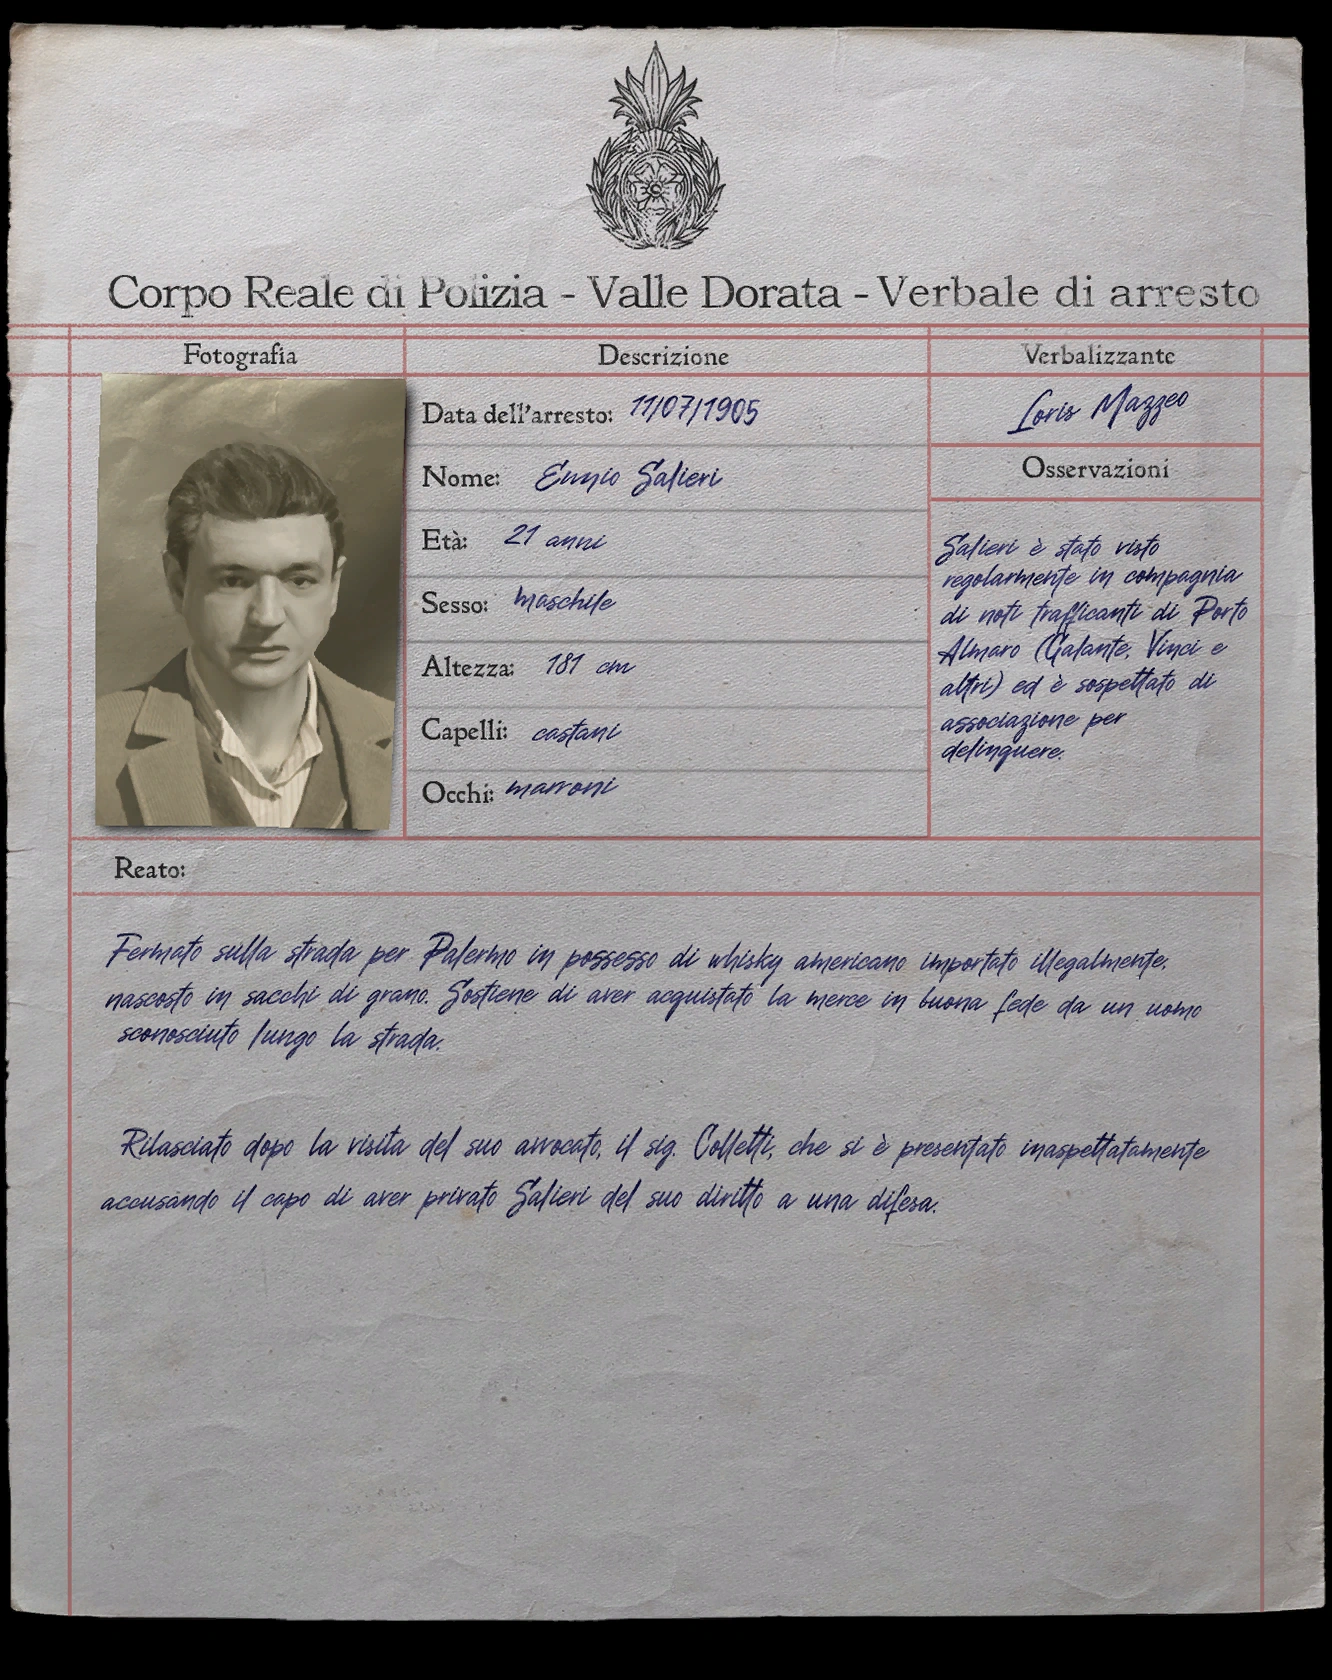 Corpo Reale di Polizia - Valle Dorata - Verbale di arresto
Fotografia
Descrizione
Verbalizzante
Data dell'arresto: 11/07/1905
Nome: Ennio Salieri
Età: 21 anni
Sesso: maschile
Altezza: 181 cm
Capelli: castani
Occhi: marroni
Loris Mazzeo
Osservazioni
Salieri è stato visto
regolarmente in compagnia
di noti trafficanti di Porto
Almaro (Galante, Vinci e
altri) ed è sospettato di
associazione per
delinquere.
Reato:
Fermato sulla strada per Palermo in possesso di whisky americano importato illegalmente,
nascosto in sacchi di grano. Sostiene di aver acquistato la merce in buona fede da un uomo
sconosciuto lungo la strada.
Rilasciato dopo la visita del suo avvocato, il sig. Colletti, che si è presentato inaspettatamente
accusando il capo di aver privato Salieri del suo diritto a una difesa.